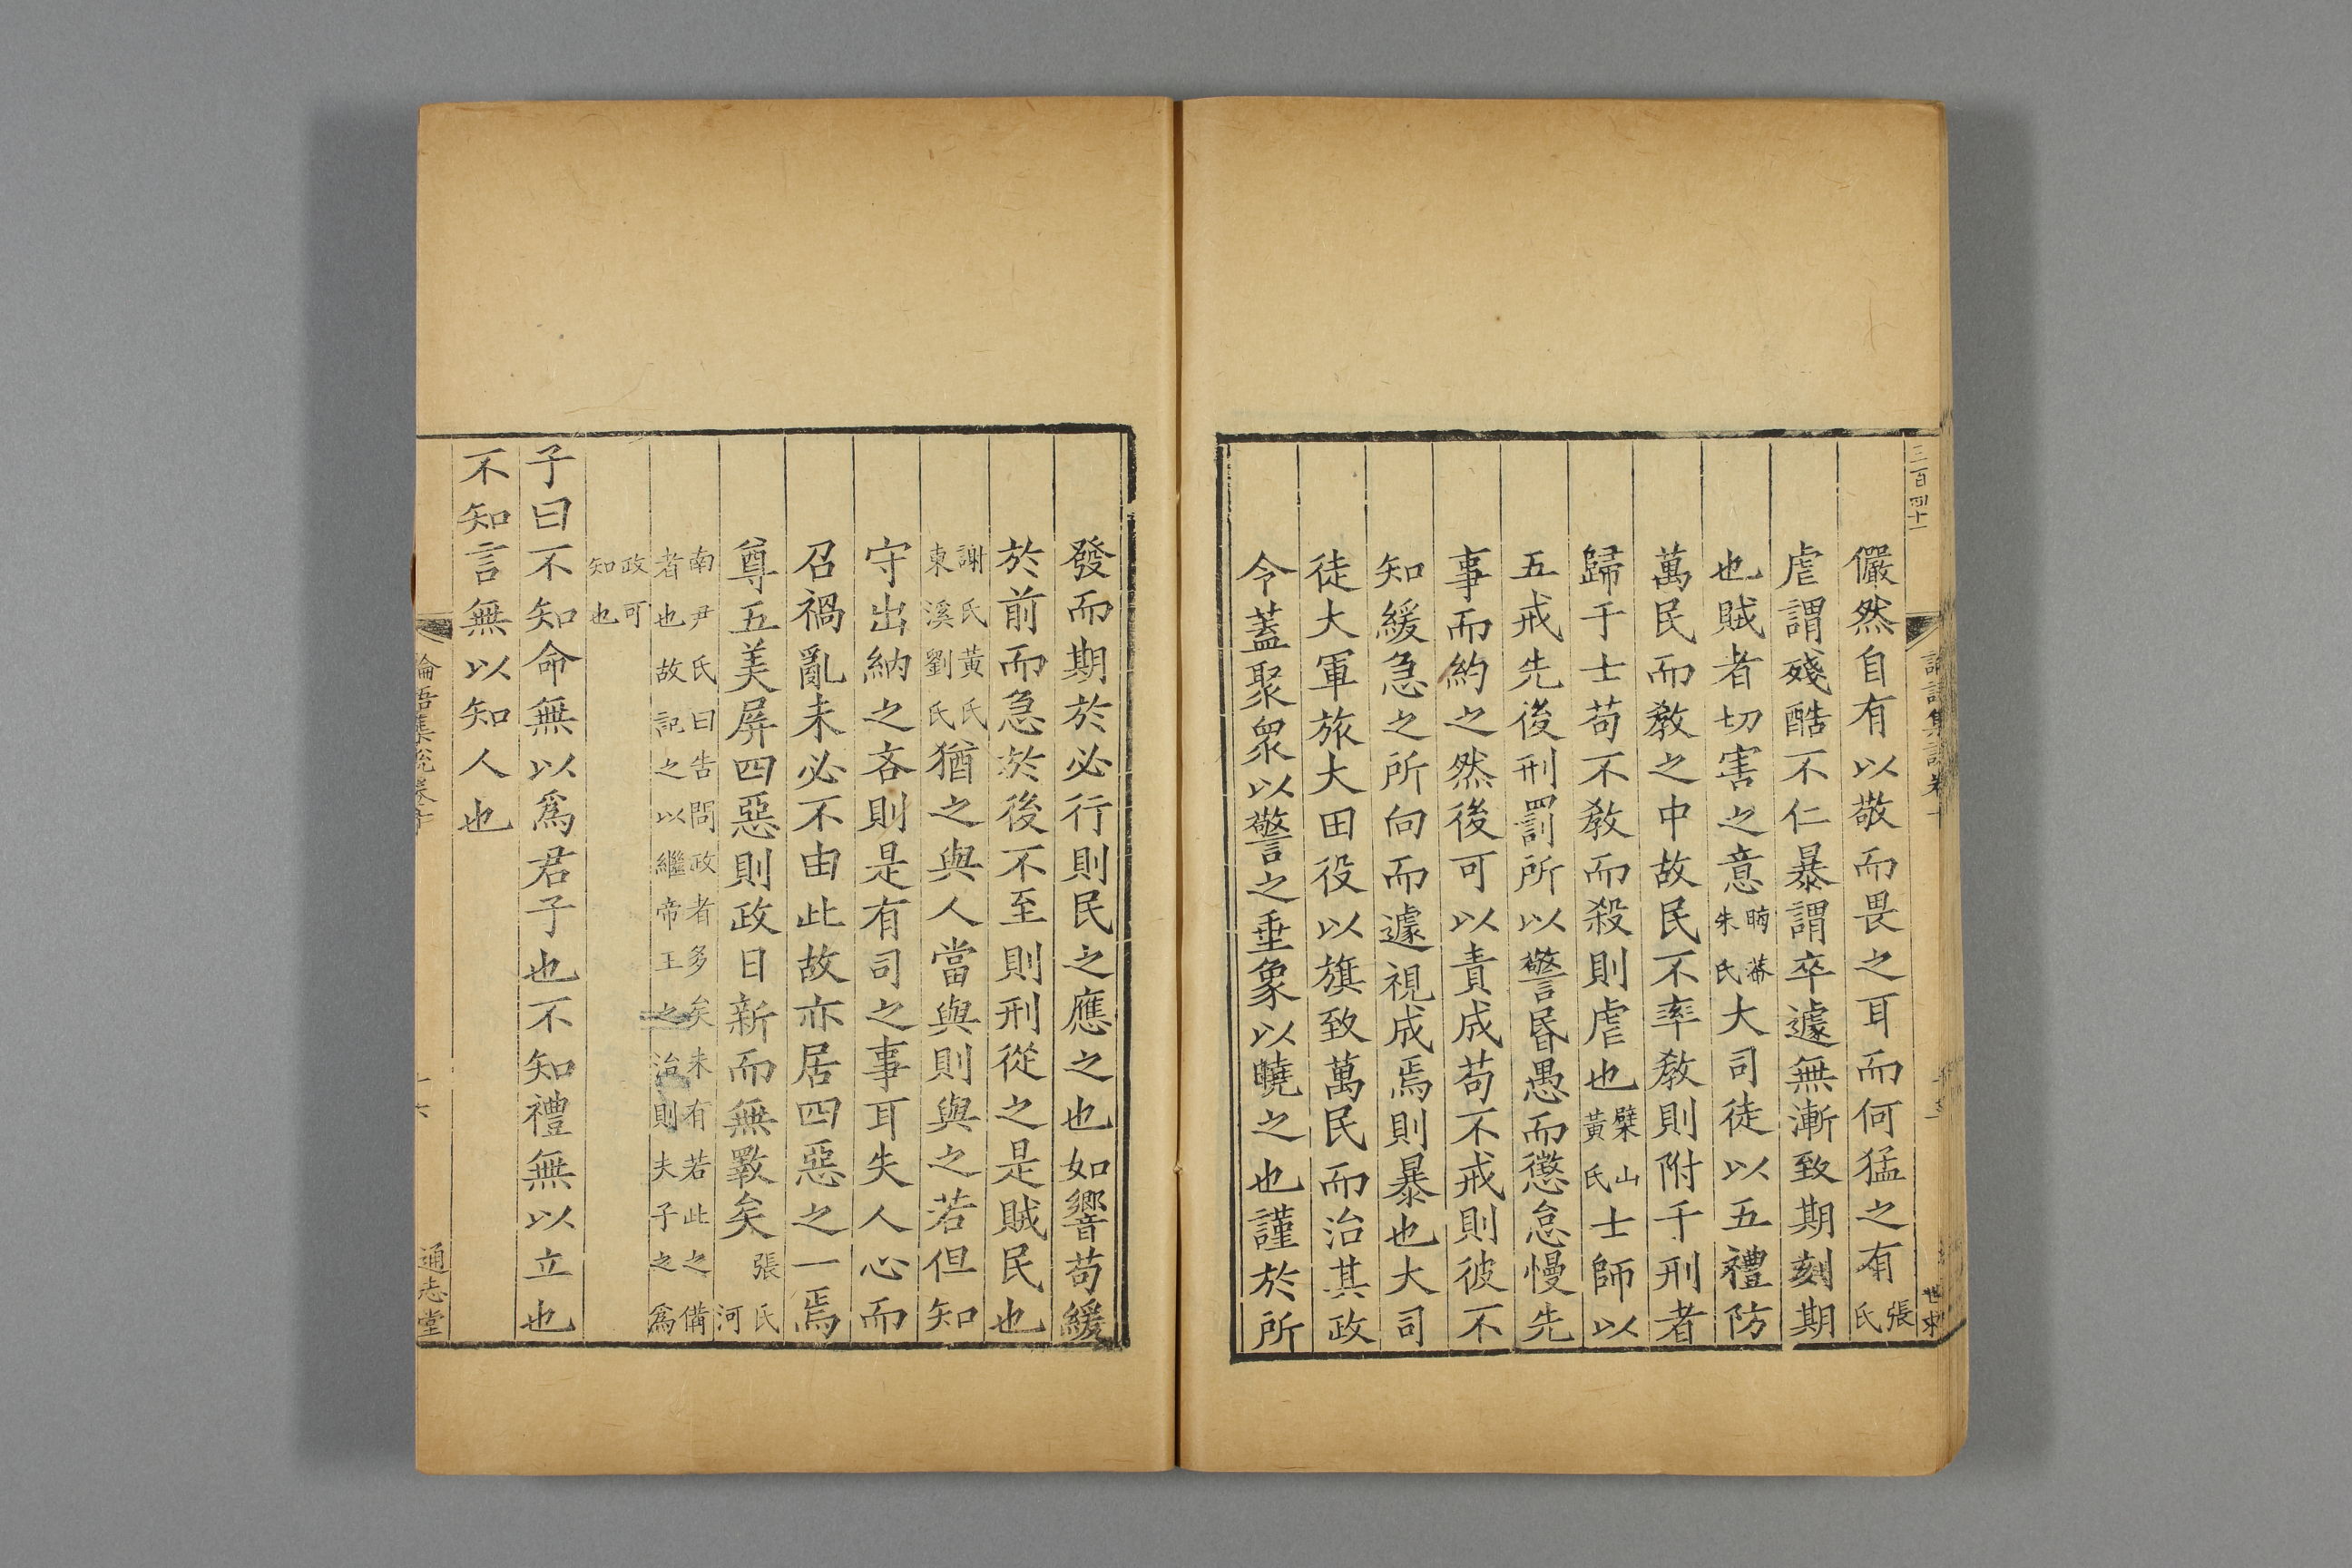 三百四十一
儼然自有以敬而畏之耳而何猛之有張氏
虐謂殘酷不仁暴謂卒遽無漸致期刻期
也賊者切害之意晦菴朱氏大司徒以五禮防
萬民而敎之中故民不率敎則附于刑者
歸于士苟不敎而殺則虐也檗山黃氏士師以
五戒先後刑罰所以警昬愚而懲怠慢先
事而約之然後可以責成苟不戒則彼不
知緩急之所向而遽視成焉則暴也大司
徒大軍旅大田役以旗致萬民而治其政
令蓋聚衆以警之垂象以曉之也謹於所
發而期於必行則民之應之也如響苟緩
於前而急於後不至則刑從之是賊民也
謝氏黃氏東溪劉氏猶之與人當與則與之若但知
守出納之吝則是有司之事耳失人心而
召禍亂未必不由此故亦居四惡之一焉
尊五美屏四惡則政日新而無斁矣張氏河
南尹氏曰告問政者多矣未有若此之備
者也故記之以繼帝王之治則夫子之爲
政可
知也
子曰不知命無以爲君子也不知禮無以立也
不知言無以知人也
論語集說卷十
十六
通志堂